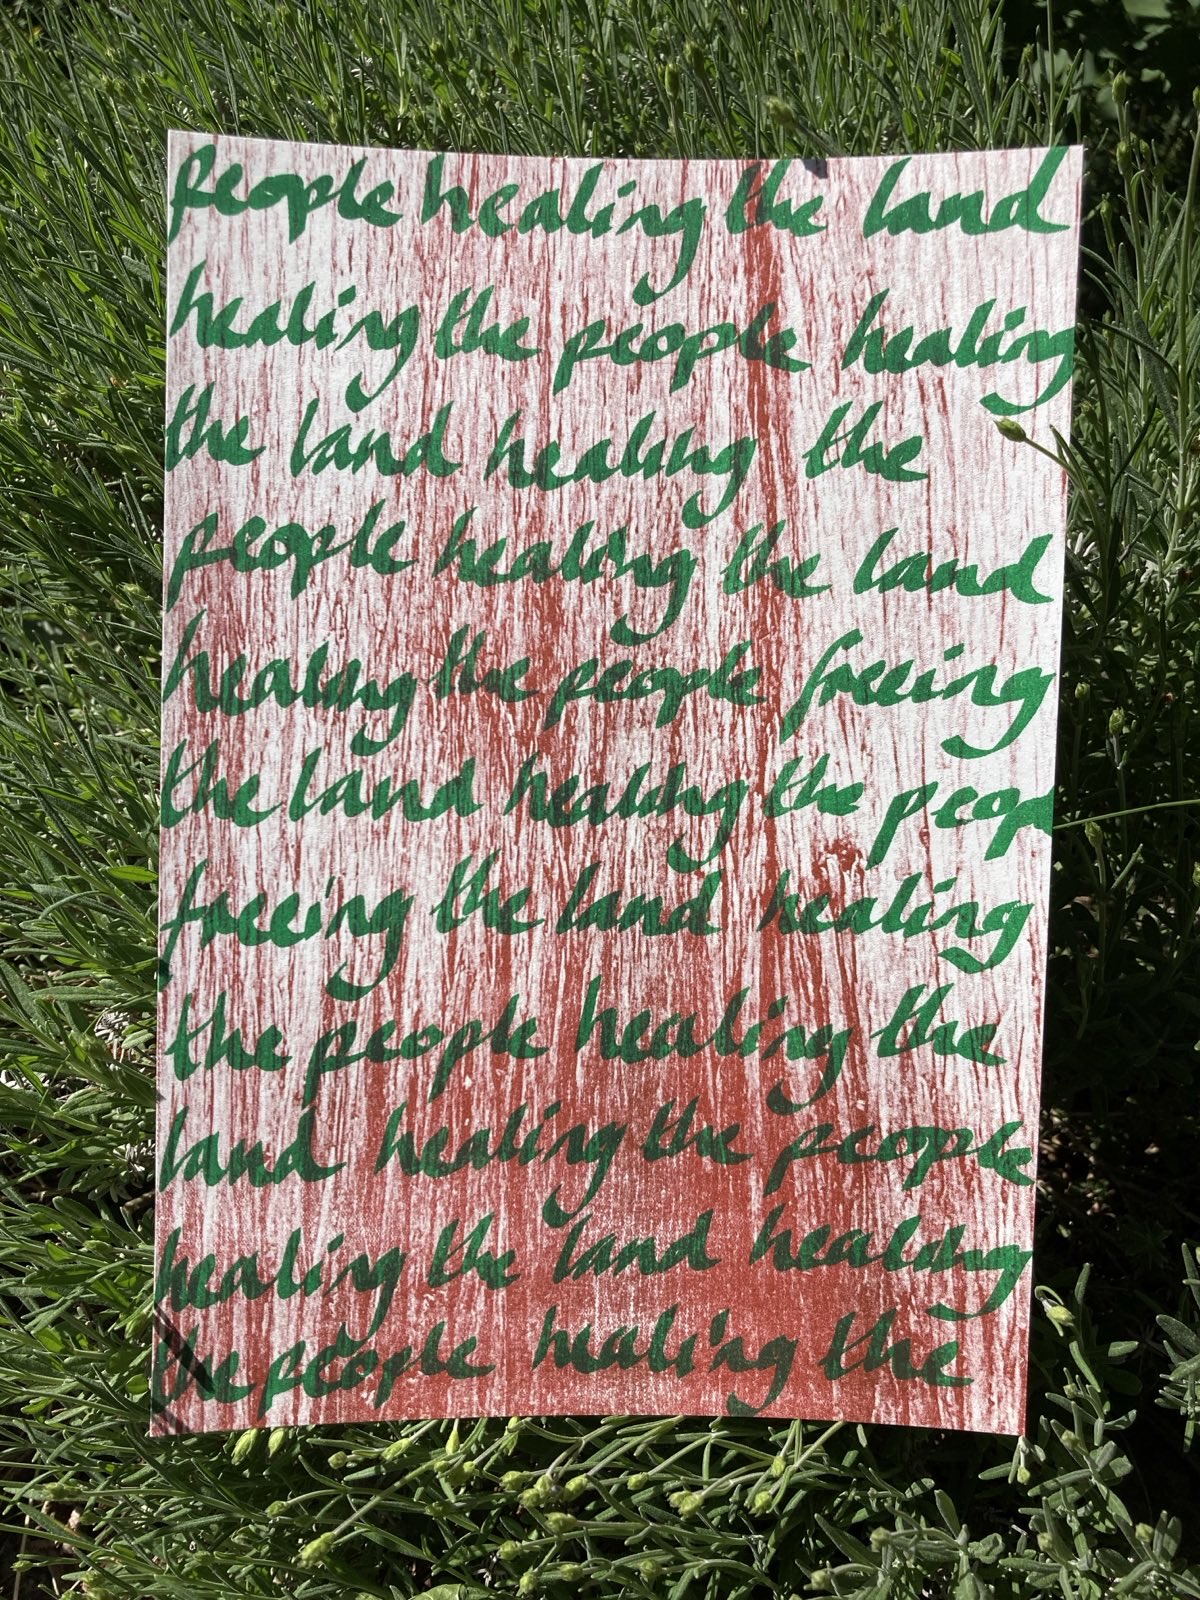 people healing the land
healing the people healing
the land healing the
people healing the land
healing the people freeing
the land healing the peop
freeing the land healing
the people healing the
land healing the people
healing the land healing
the people healing the